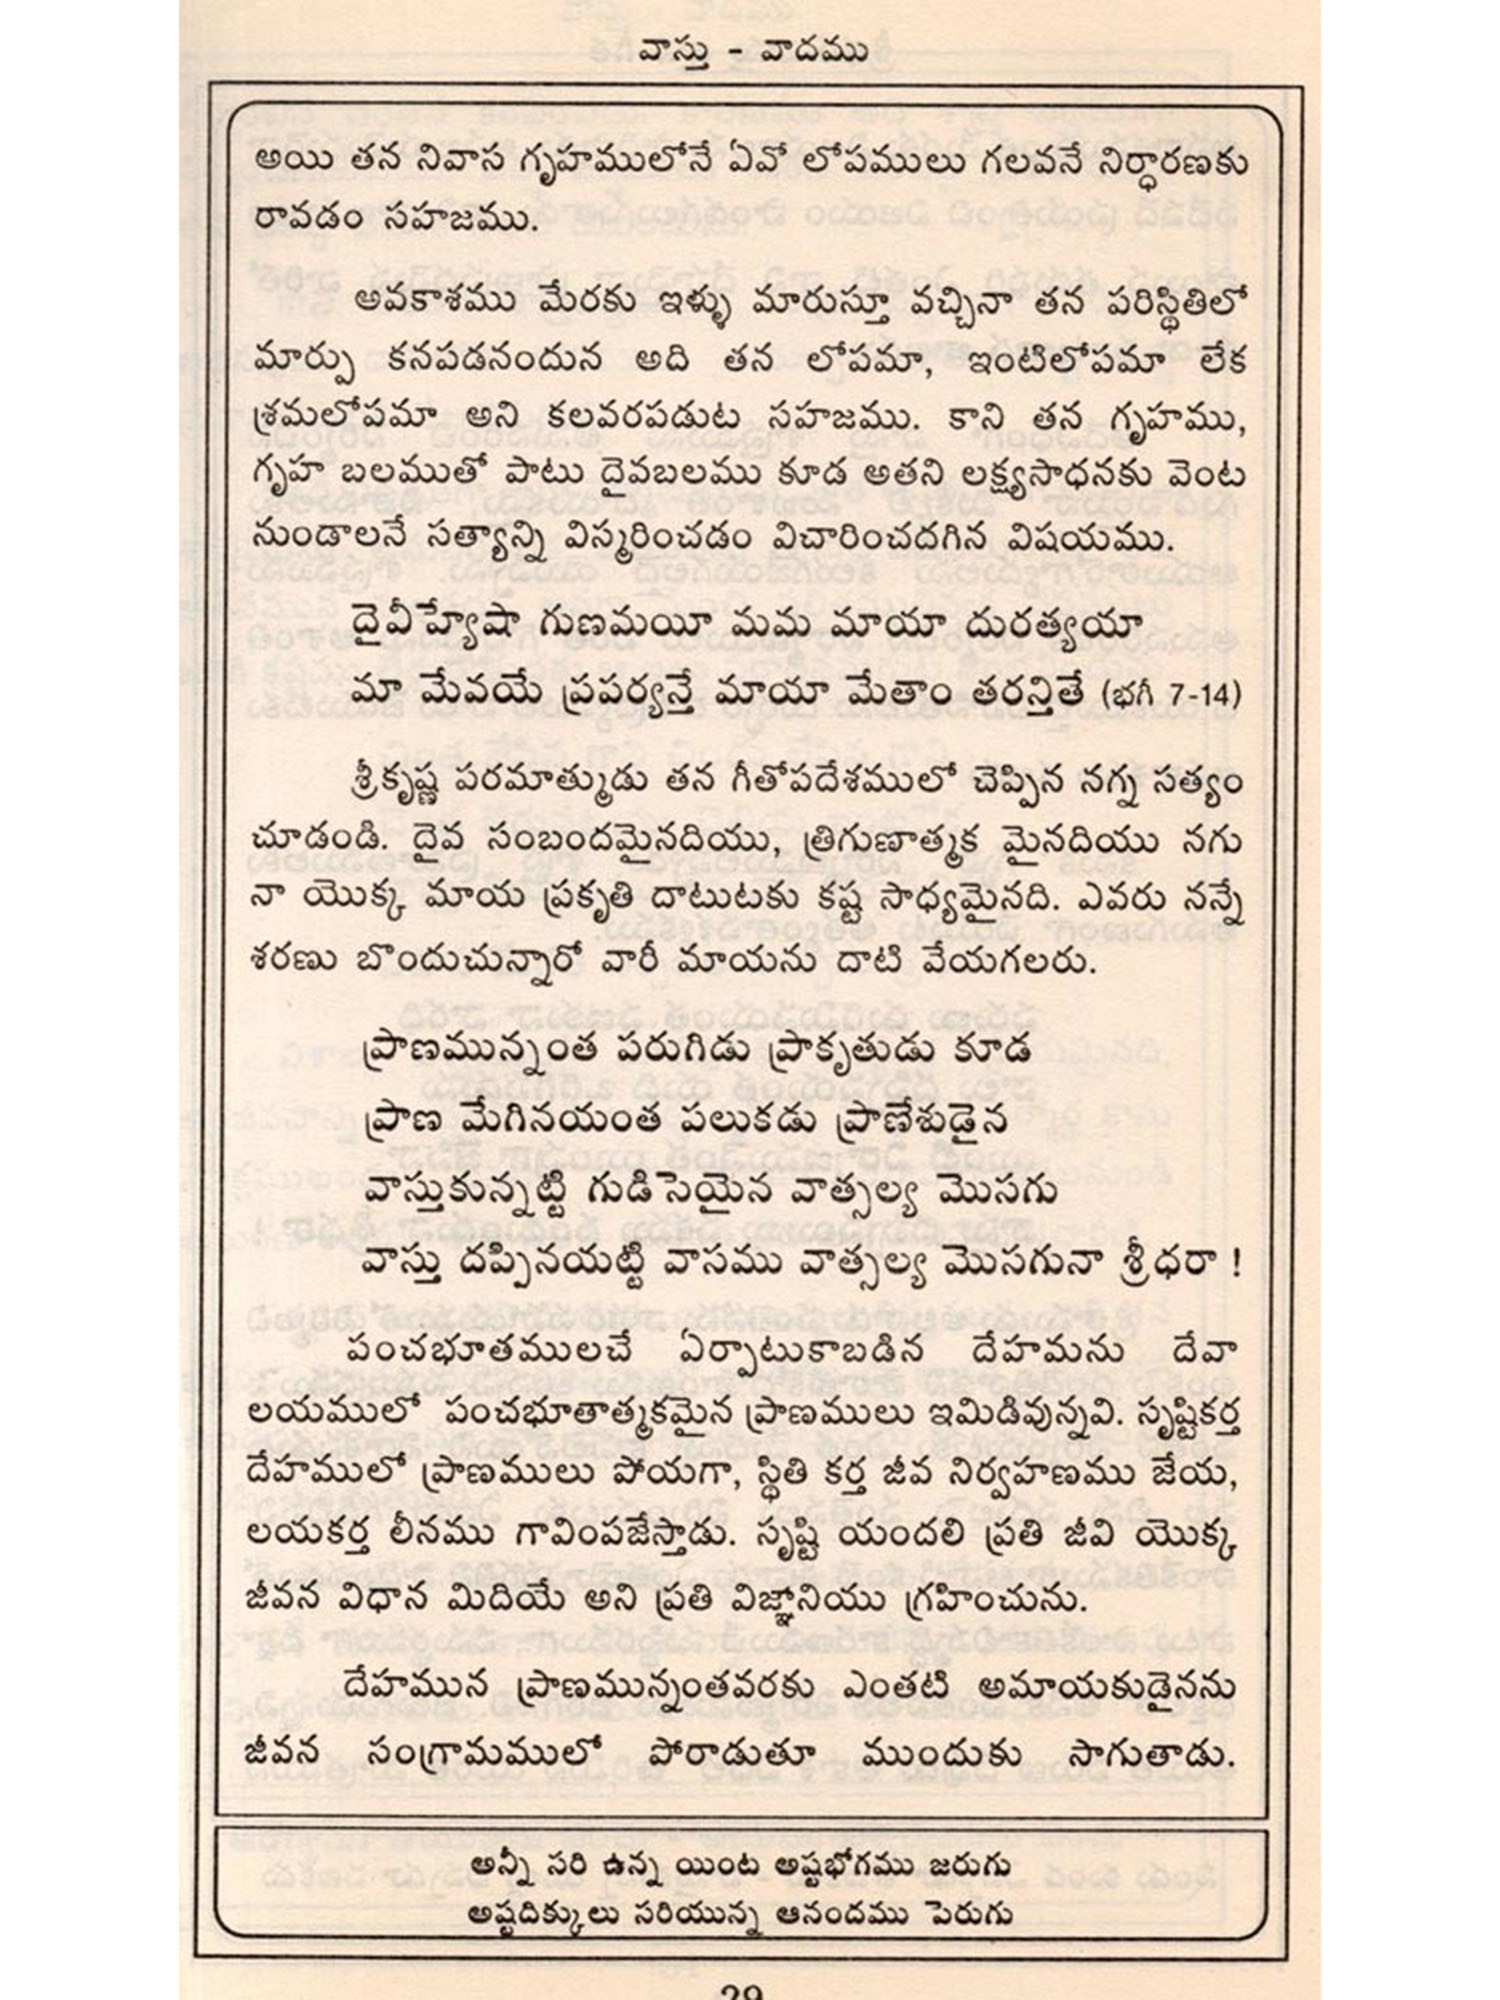 వాస్తు - వాదము
అయి తన నివాస గృహములోనే ఏవో లోపములు గలవనే నిర్ధారణకు
రావడం సహజము.
అవకాశము మేరకు ఇళ్ళు మారుస్తూ వచ్చినా తన పరిస్థితిలో
మార్పు కనపడనందున అది తన లోపమా, ఇంటిలోపమా లేక
శ్రమలోపమా అని కలవరపడుట సహజము. కాని తన గృహము,
గృహ బలముతో పాటు దైవబలము కూడ అతని లక్ష్యసాధనకు వెంట
నుండాలనే సత్యాన్ని విస్మరించడం విచారించదగిన విషయము.
దైవీహ్యేషా గుణమయీ మమ మాయా దురత్యయా
మా మేవయే ప్రపర్యన్తే మాయా మేతాం తరన్తితే (భగీ 7-14)
శ్రీకృష్ణ పరమాత్ముడు తన గీతోపదేశములో చెప్పిన నగ్న సత్యం
చూడండి. దైవ సంబందమైనదియు, త్రిగుణాత్మక మైనదియు నగు
నా యొక్క మాయ ప్రకృతి దాటుటకు కష్ట సాధ్యమైనది. ఎవరు నన్నే
శరణు బొందుచున్నారో వారీ మాయను దాటి వేయగలరు.
ప్రాణమున్నంత పరుగిడు ప్రాకృతుడు కూడ
ప్రాణ మేగినయంత పలుకడు ప్రాణేశుడైన
వాస్తుకున్నట్టి గుడిసెయైన వాత్సల్య మొసగు
వాస్తు దప్పినయట్టి వాసము వాత్సల్య మొసగునా శ్రీధరా !
పంచభూతములచే ఏర్పాటుకాబడిన దేహమను దేవా
లయములో పంచభూతాత్మకమైన ప్రాణములు ఇమిడివున్నవి. సృష్టికర్త
దేహములో ప్రాణములు పోయగా, స్థితి కర్త జీవ నిర్వహణము జేయ,
లయకర్త లీనము గావింపజేస్తాడు. సృష్టి యందలి ప్రతి జీవి యొక్క
జీవన విధాన మిదియే అని ప్రతి విజ్ఞానియు గ్రహించును.
దేహమున ప్రాణమున్నంతవరకు ఎంతటి అమాయకుడైనను
జీవన సంగ్రామములో పోరాడుతూ ముందుకు సాగుతాడు.
అన్నీ సరి ఉన్న యింట అష్టభోగము జరుగు
అష్టదిక్కులు సరియున్న ఆనందము పెరుగు
29